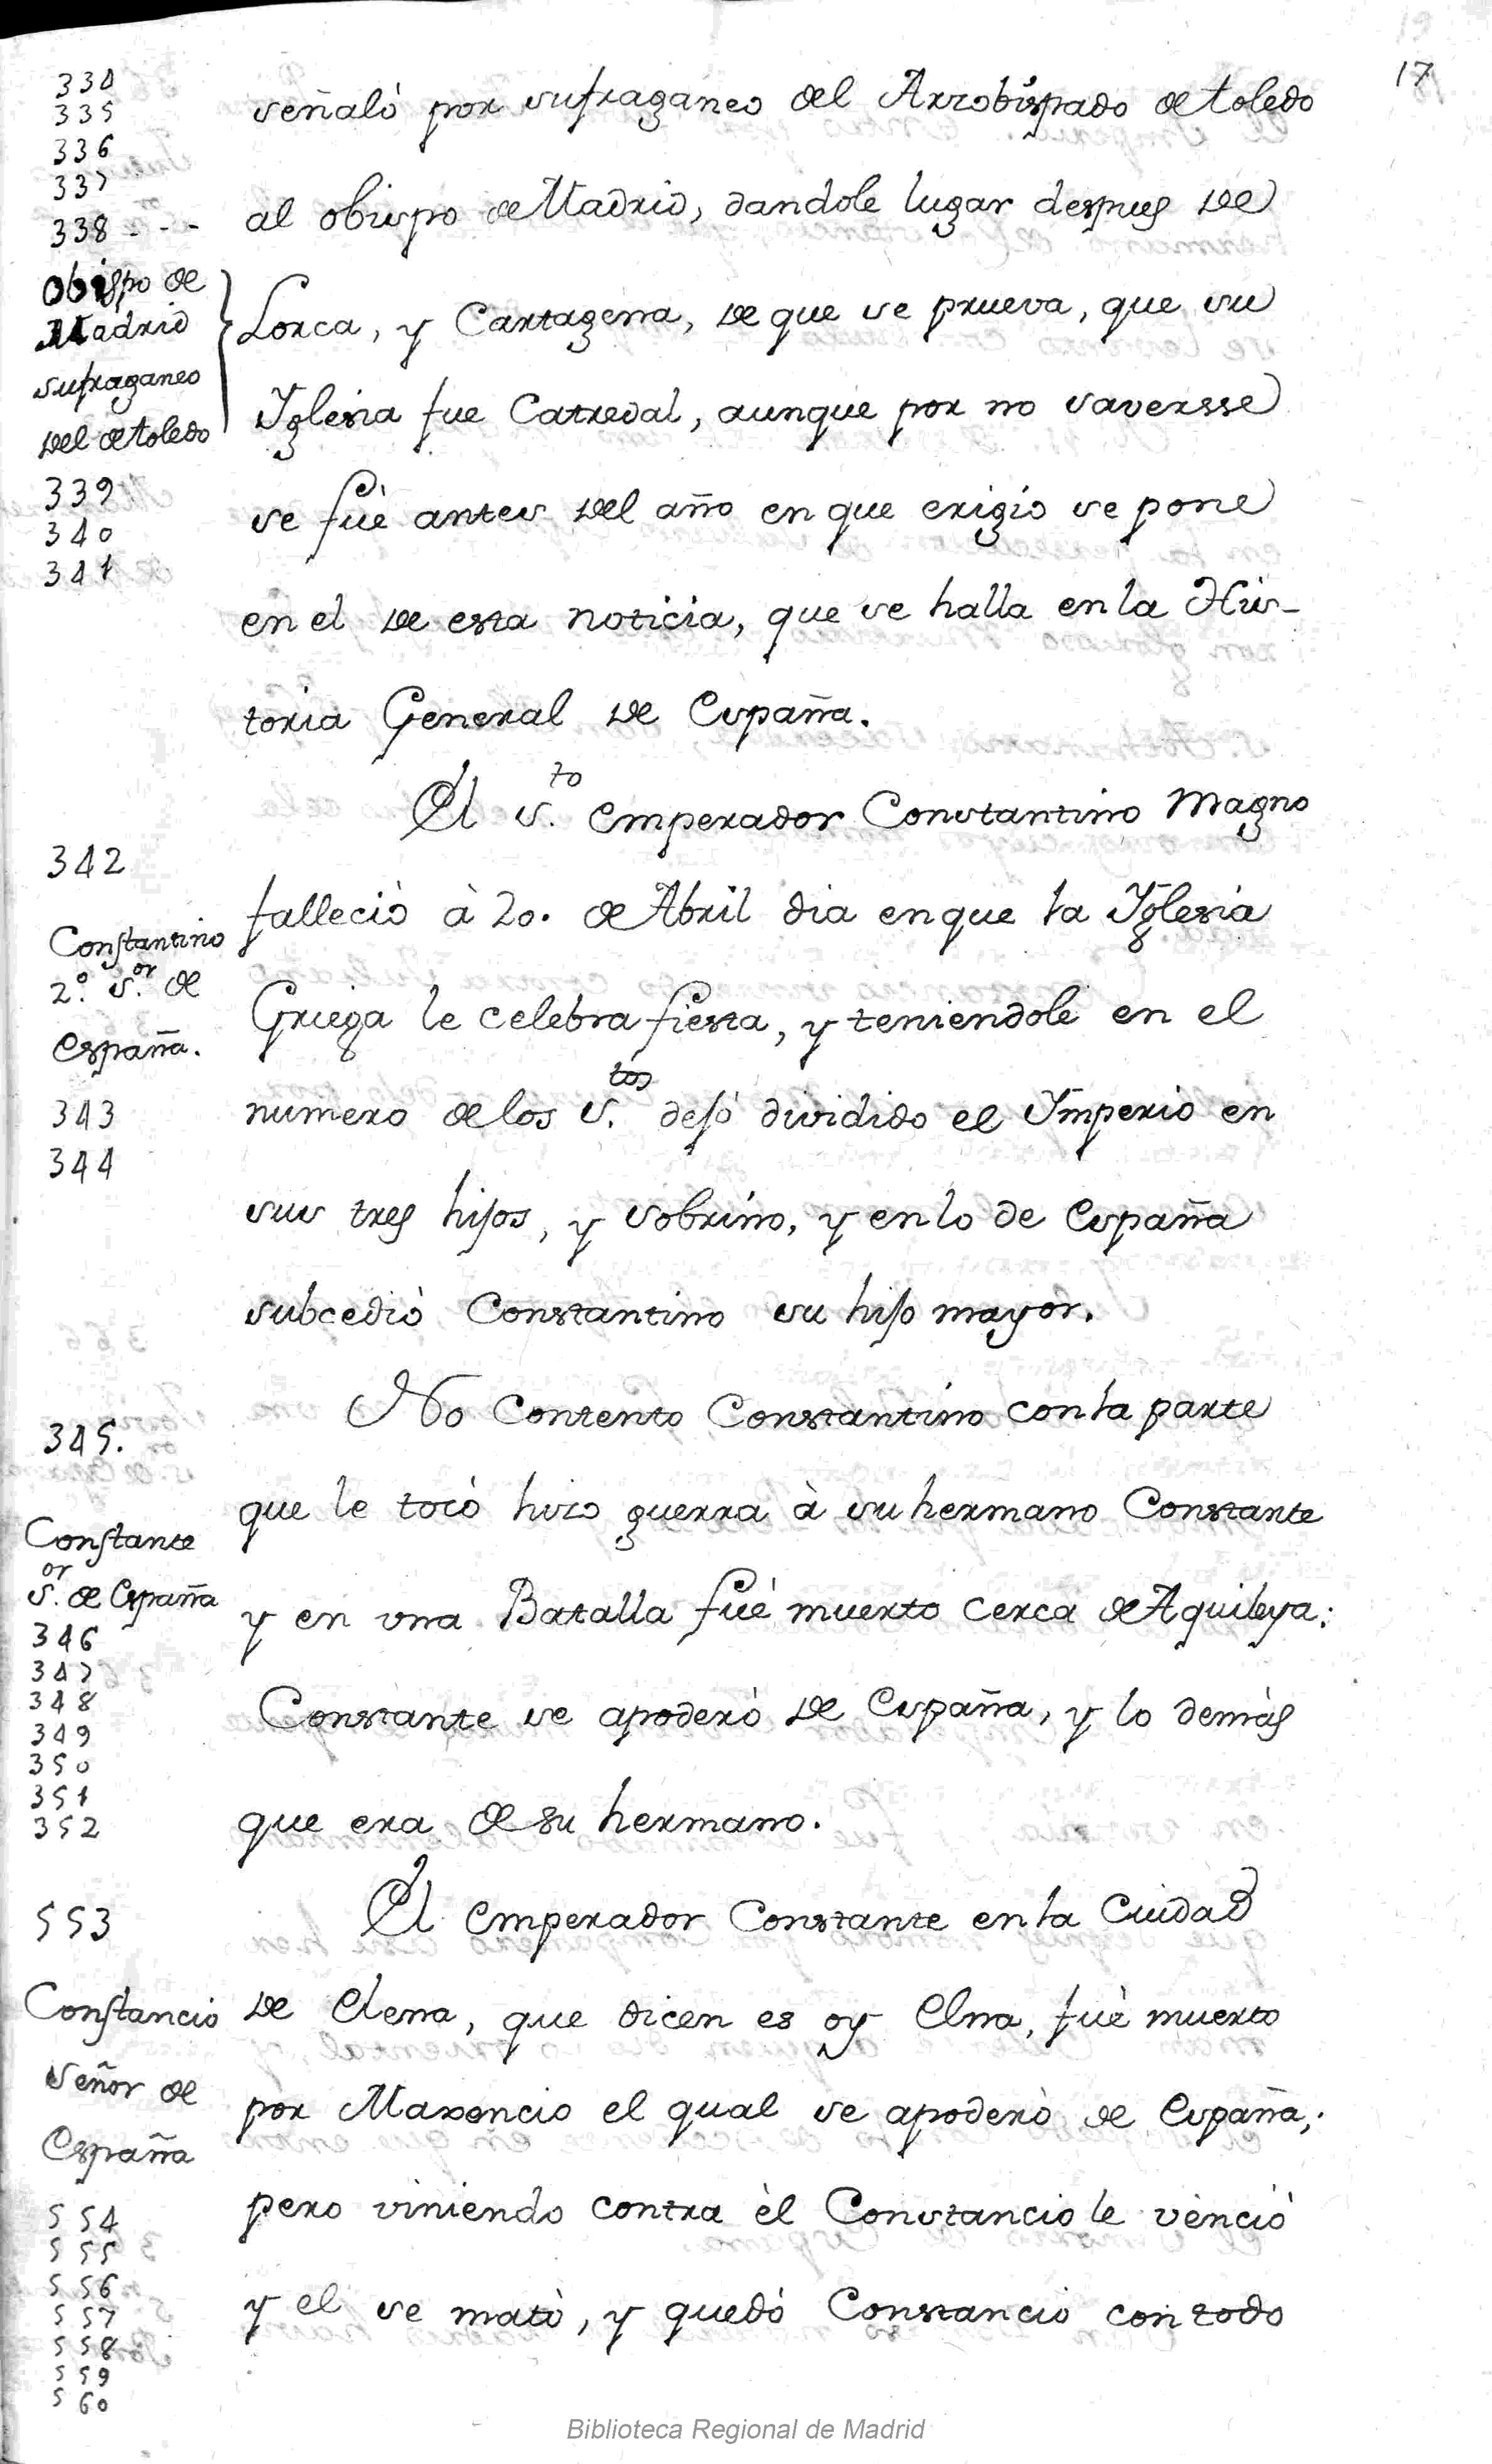 17
334
335
336
337
338 - - -
señalò por sufraganeo del Arzobispado de toledo
al obispo de Madrid, dandole lugar despues de
Obispo de
Madrid
sufraganeo
del de toledo
Lorca, y Cartagena, de que se prueva, que su
Iglesia fue Catredal, aunque por no saversse
339
340
341
se fuè antes del año en que erigio se pone
en el de esta noticia, que se halla en la His-
toria General de España.
El S.to Emperador Constantino Magno
342
Constantino
2.º S.or de
España.
343
344
falleciò à 20. de Abril dia en que la Iglesia
Griega le celebra fiesta, y teniendole en el
numero de los S.tos dejó dividido el Imperio en
sus tres hijos, y sobrino, y en lo de España
subcediò Constantino su hijo mayor.
345.
No contento Constantino con la parte
que le tocò hizo guerra à su hermano Constante
Constante
S.or de España
346
347
348
349
350
351
352
y en una Batalla fuè muerto cerca de Aquileya:
Constante se apoderò de España, y lo demàs
que era de su hermano.
553
El Emperador Constante en la Ciudad
Constancio
Señor de
España
554
555
556
557
558
559
560
de Elena, que dicen es oy Elna, fuè muerto
por Maxencio el qual se apoderò de España,.
pero viniendo contra èl Constancio le venciò
y el se matò, y quedó Constancio con todo
Biblioteca Regional de Madrid